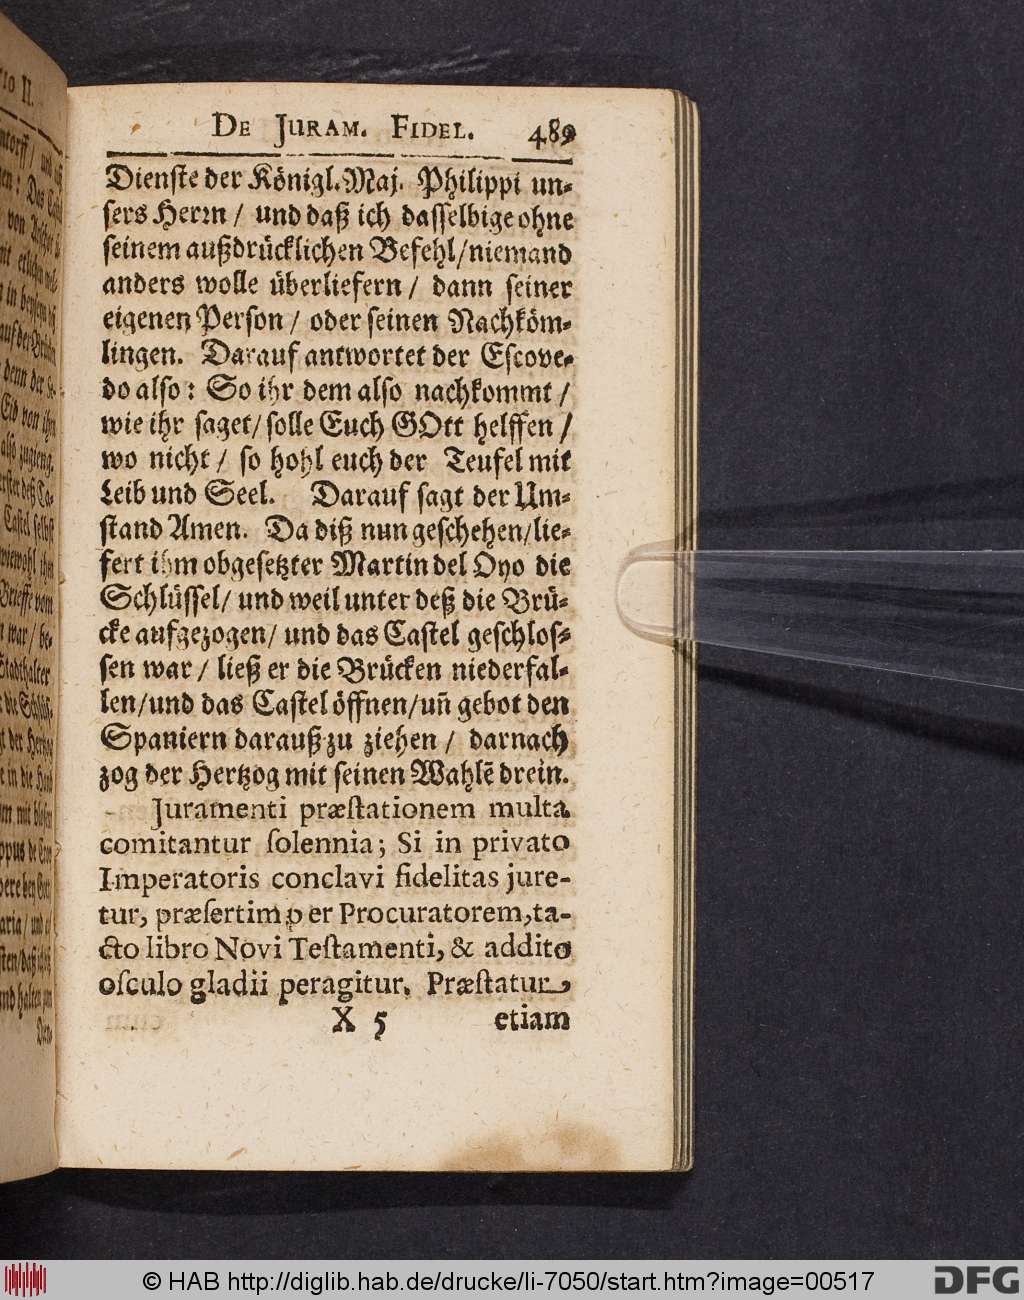 De Juram. Fidel. 489
Dienste der Königl. Maj. Philippi un-
sers Herrn / und daß ich dasselbige ohne
seinem außdrücklichen Befehl / niemand
anders wolle überliefern / dann seiner
eigenen Person / oder seinen Nachköm-
lingen. Darauf antwortet der Escove-
do also: So ihr dem also nachkommt /
wie ihr saget / solle Euch GOtt helffen /
wo nicht / so hohl euch der Teufel mit
Leib und Seel. Darauf sagt der Um-
stand Amen. Da diß nun geschehen / lie-
fert ihm obgesetzter Martin del Oyo die
Schlüssel / und weil unter deß die Brü-
cke aufgezogen / und das Castel geschlos-
sen war / ließ er die Brücken niederfal-
len / und das Castel öffnen / uñ gebot den
Spaniern darauß zu ziehen / darnach
zog der Hertzog mit seinen Wahlẽ drein.
Juramenti præstationem multa
comitantur solennia; Si in privato
Imperatoris conclavi fidelitas jure-
tur, præsertim per Procuratorem, ta-
cto libro Novi Testamenti, & addito
osculo gladii peragitur. Præstatur
X 5 etiam
© HAB http://diglib.hab.de/drucke/li-7050/start.htm?image=00517
DFG